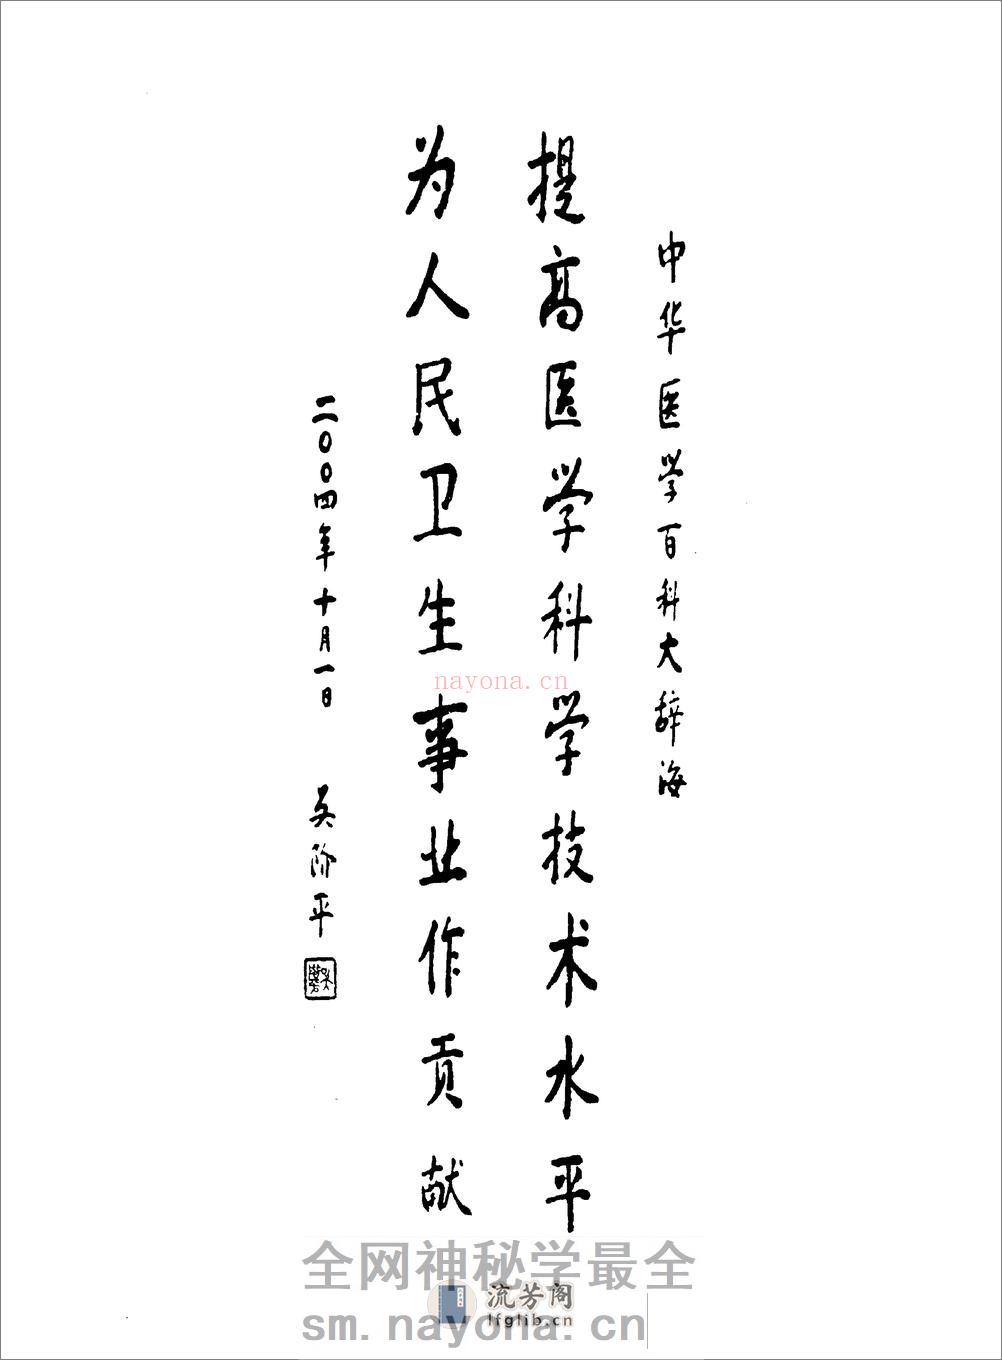 中华医学百科大辞海
提高医学科学技术水平
为人民卫生事业作贡献
二〇〇四年十月一日 吴阶平
nayona.cn
全网神秘学最全
流芳阁
lfglib.cn
sm.nayona.cn